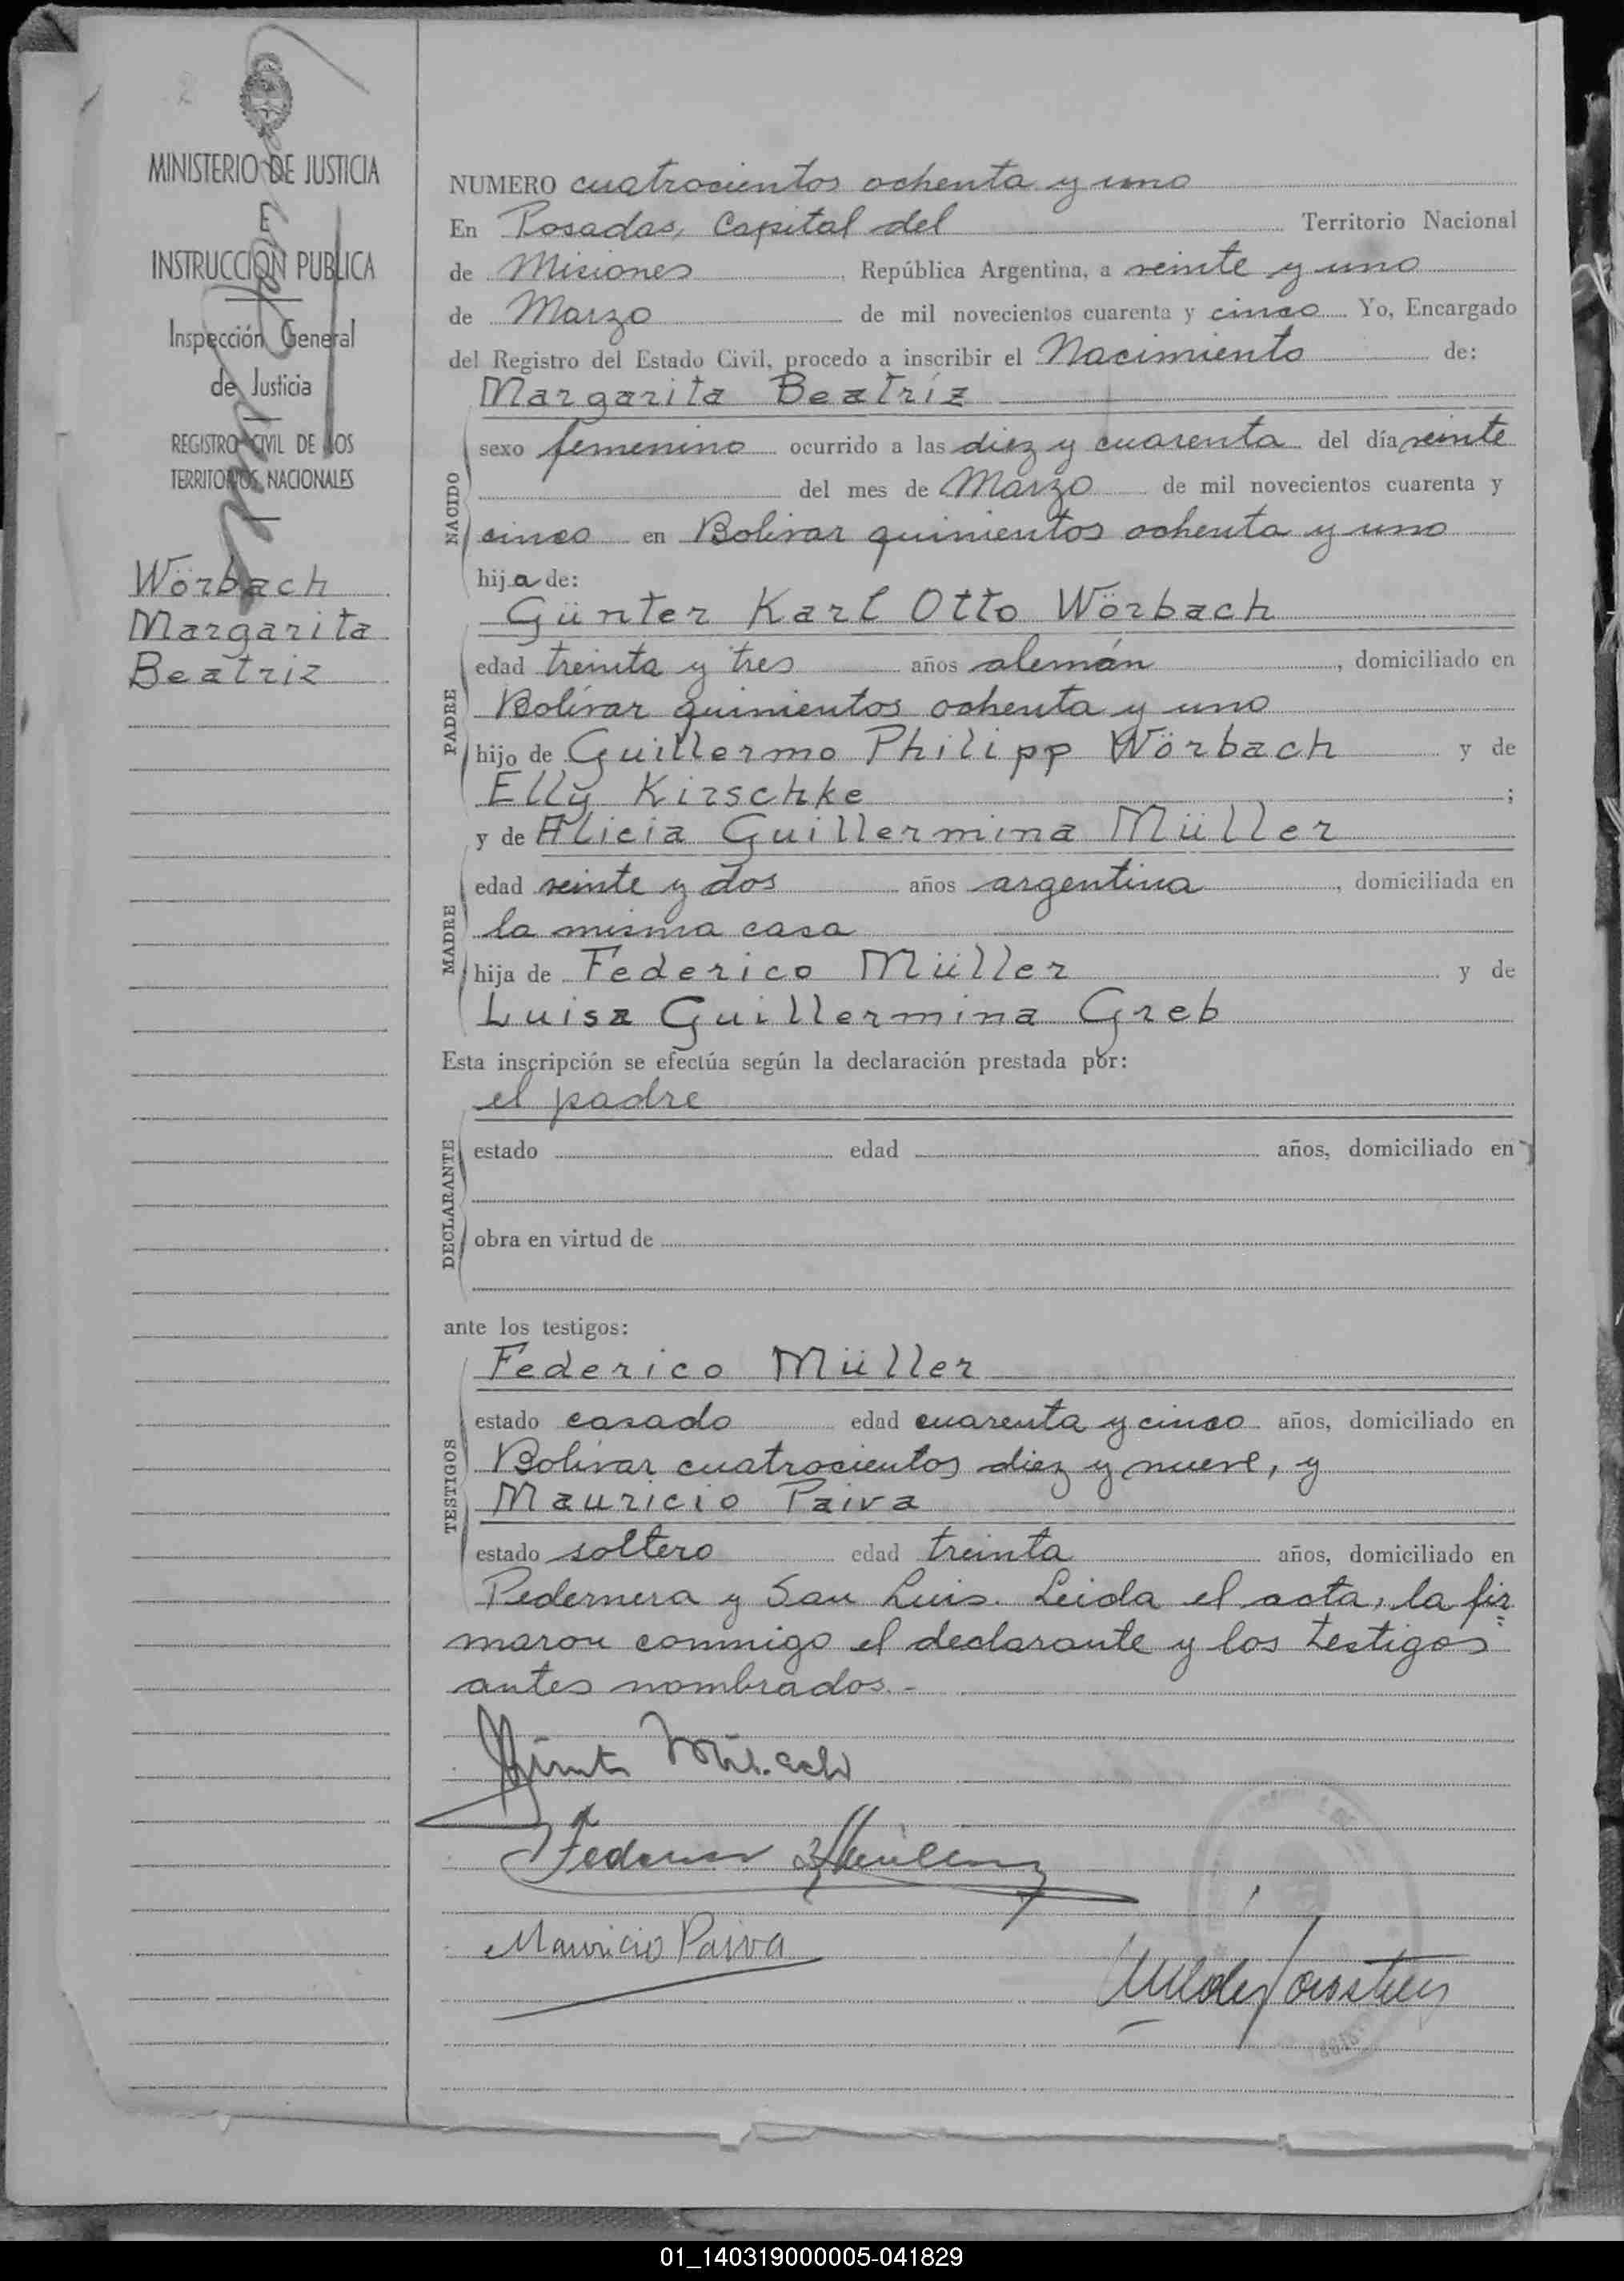 MINISTERIO DE JUSTICIA
E
INSTRUCCIÓN PUBLICA
Inspección General
de Justicia
REGISTRO CIVIL DE LOS
TERRITORIOS NACIONALES
Wörbach
Margarita
Beatriz
NUMERO cuatrocientos ochenta y uno
En Posadas, Capital del Territorio Nacional
de Misiones, República Argentina, a veinte y uno
de Marzo de mil novecientos cuarenta y cinco Yo, Encargado
del Registro del Estado Civil, procedo a inscribir el Nacimiento de:
Margarita Beatríz
NACIDO
sexo femenino ocurrido a las diez y cuarenta del día veinte
del mes de Marzo de mil novecientos cuarenta y
cinco en Bolivar quinientos ochenta y uno
hija de:
Günter Karl Otto Wörbach
PADRE
edad treinta y tres años alemán, domiciliado en
Bolívar quinientos ochenta y uno
hijo de Guillermo Philipp Wörbach y de
Elly Kirschke ;
y de Alicia Guillermina Müller
MADRE
edad veinte y dos años argentina, domiciliada en
la misma casa
hija de Federico Müller y de
Luisa Guillermina Greb
Esta inscripción se efectúa según la declaración prestada por:
el padre
DECLARANTE
estado edad años, domiciliado en
obra en virtud de
ante los testigos:
Federico Müller
TESTIGOS
estado casado edad cuarenta y cinco años, domiciliado en
Bolívar cuatrocientos diez y nueve, y
Mauricio Paiva
estado soltero edad treinta años, domiciliado en
Pedernera y San Luis. Leida el acta, la fir
maron conmigo el declarante y los testigos
antes nombrados.-
Mauricio Paiva
01_140319000005-041829